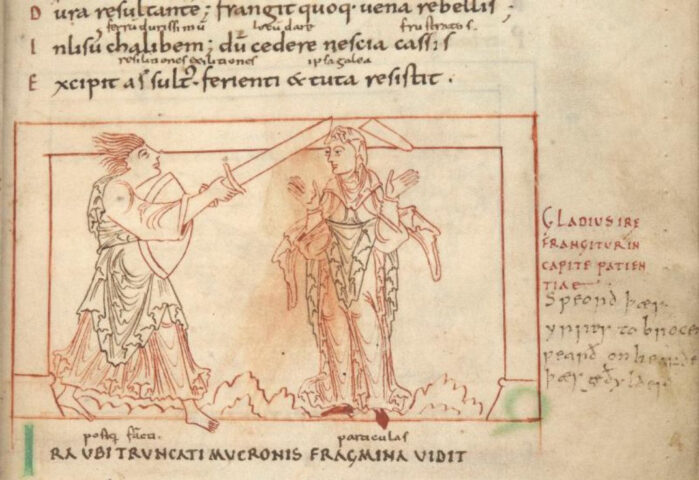 Dura resultante; frangit quoq; uena rebellis;
ferrū durissimū
Inlisū chalibem; dū cedere nescia cassis
resilitiones exilitiones ipsa galea
Excipit assult; ferienti & tuta resistit.
GLADIUS IRE
FRANGITUR IN
CAPITE PATIEN
TIAE
Sƿeord þær
to brocen
ƿeard on heauede
þær
particulas
IRA UBI TRUNCATI MUCRONIS FRAGMINA UIDIT